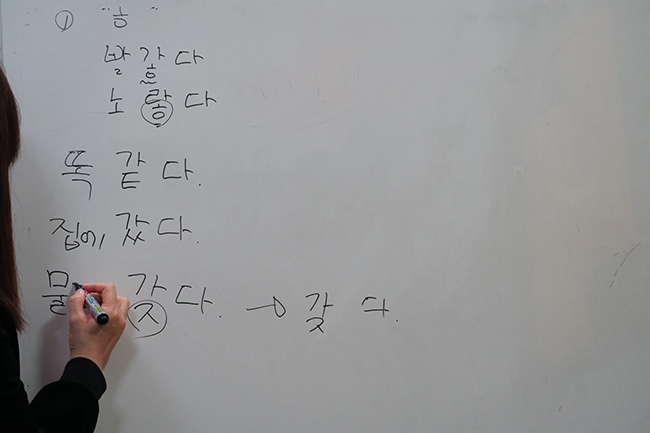 ① "ㅎ"
빨갛다
노랗다
똑같다.
집에 갔다.
물 갖다. → 갖 다.